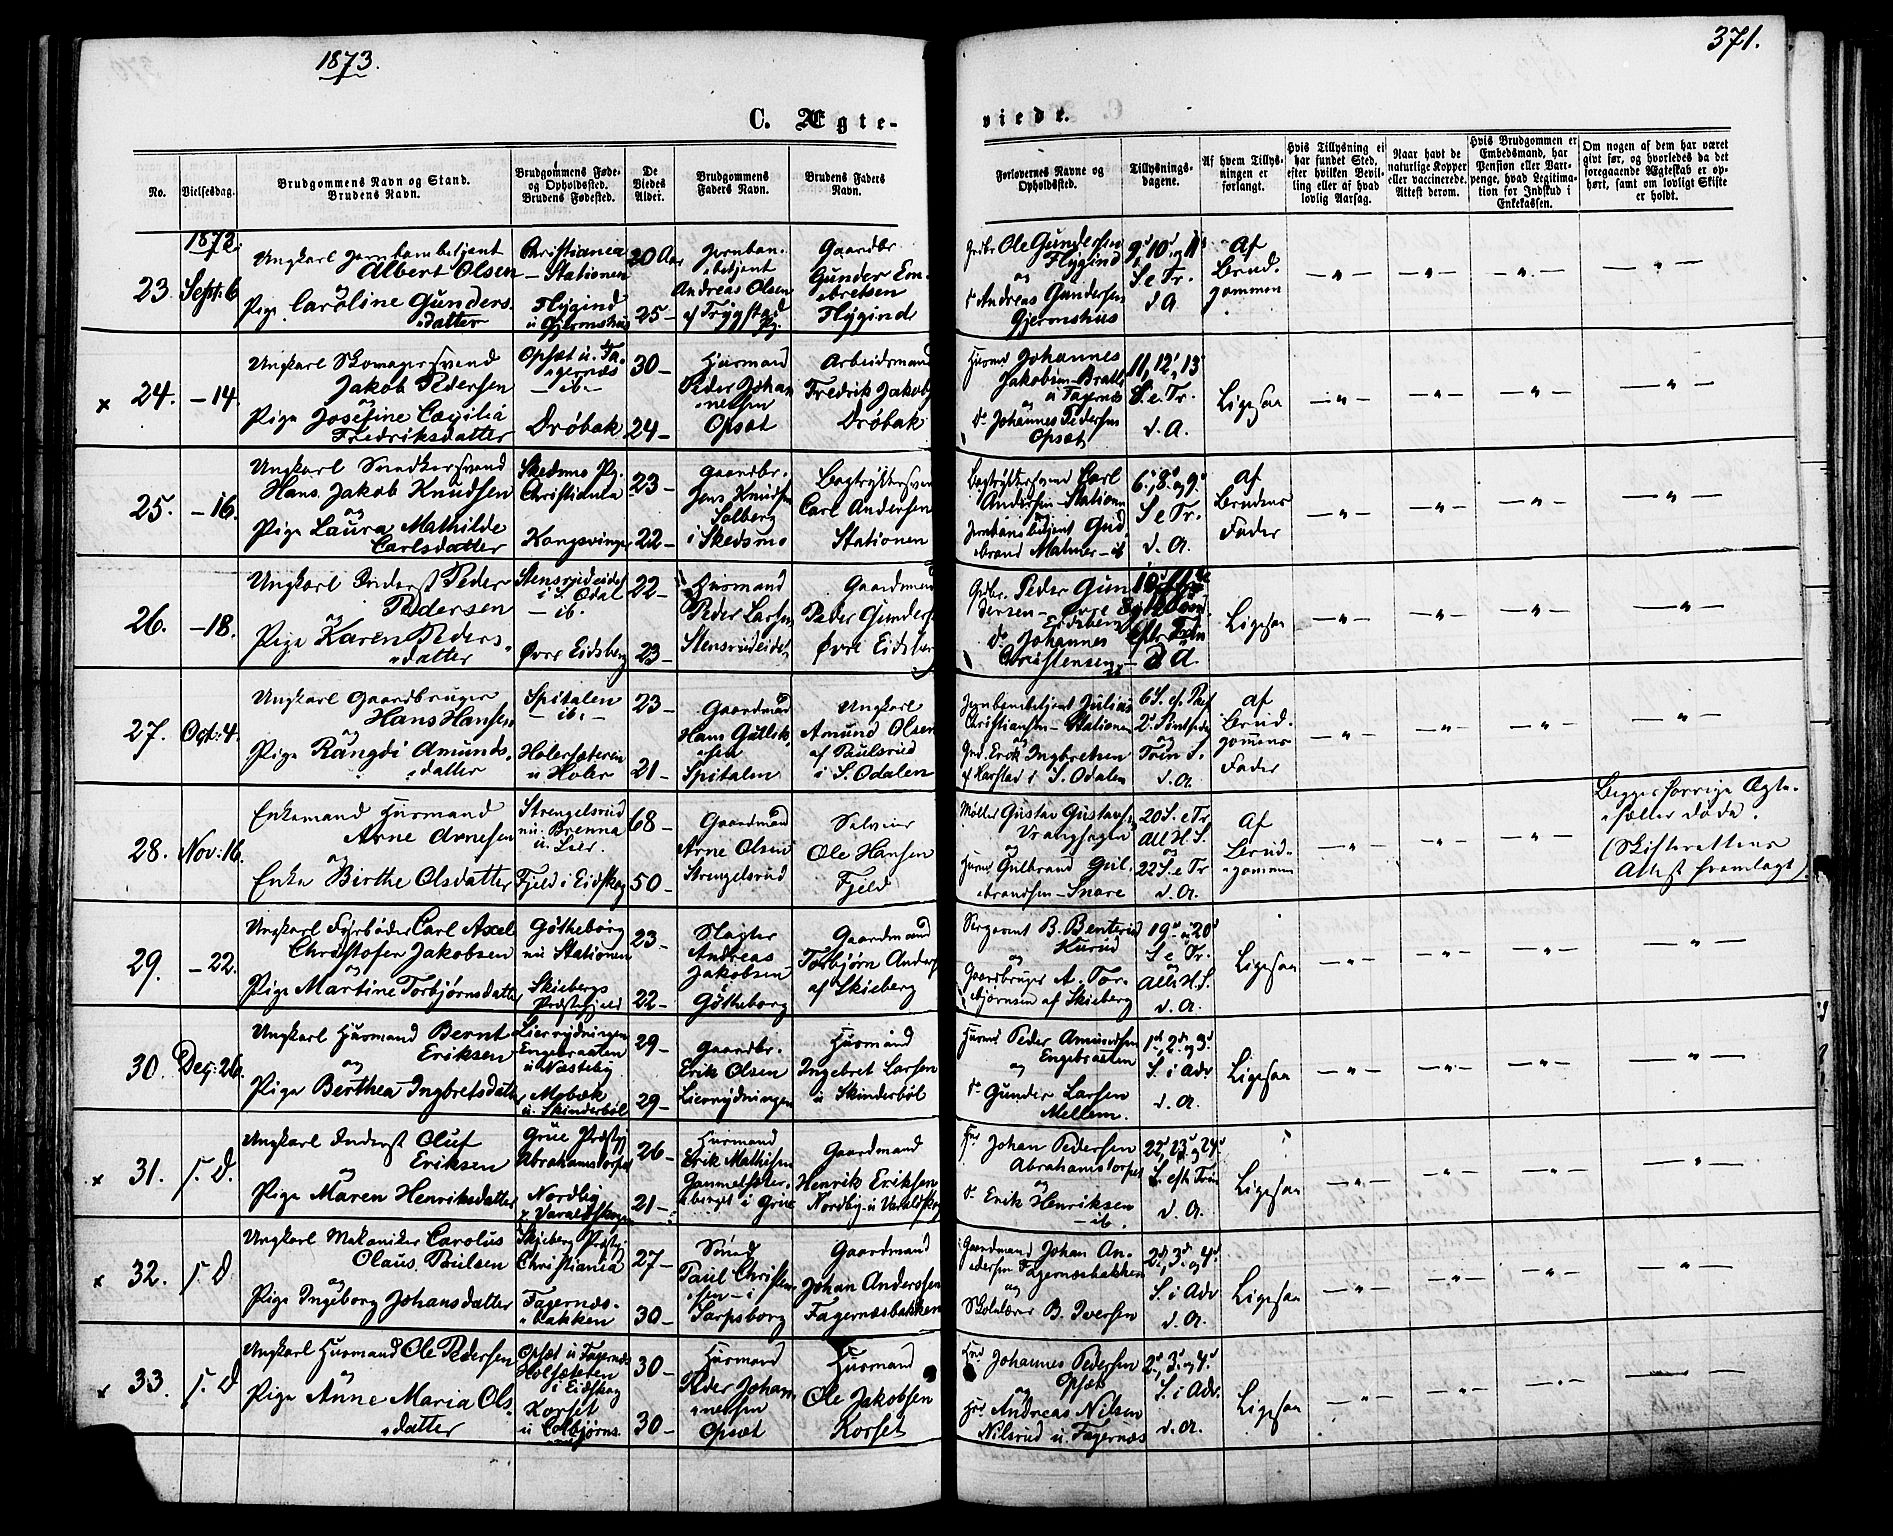 1873.
371.
C. Ægte-
viede.
No.
Vielsesdag.
Brudgommens Navn og Stand.
Brudens Navn.
Brudgommens Føde-
og Opholdssted.
Brudens Fødested.
De
Viedes
Alder.
Brudgommens
Faders Navn.
Brudens Faders
Navn.
Forlovernes Navne og
Opholdssted.
Tillysnings-
dagene.
Af hvem Tillys-
ningen er
forlangt.
Hvis Tillysning ei
har fundet Sted,
efter hvilken Bevil-
ling eller af hvad
lovlig Aarsag.
Naar havt de
naturlige Kopper
eller vaccinerede.
Attest derom.
Hvis Brudgommen er
Embedsmand, har
Pension eller Vart-
penge, hvad Legitima-
tion for Indskud i
Enkekassen.
Om nogen af dem har været
givt før, og hvorledes da det
foregaaende Ægteskab er op-
hørt, samt om lovligt Skifte
er holdt.
1873.
23. Sept: 6
Ungkarl Jernbanebetjent
Albert Olsen
og
Pige Caroline Gunders-
datter
Christiania
Stationen
Flygind
u Gjermshus
20 Aar
25 -
Jernban-
betjent
Andreas Olsen
af Trygstad
Pg.
Gaardbr
Gunder Em-
bretsen
Flygind
Grdbr Ole Gundersen
Flygind
og
do Andreas Gundersen
Gjermshus
9d, 10d og 11d
S. e Tr.
d. A.
Af
Brud-
gommen
x 24. - 14.
Ungkarl Skomagersvend
Jakob Pedersen
og
Pige Josefine Cæcilia
Fredriksdatter
Opsæt u. Fa-
gernæs
- ib. -
Drøbak
30 -
24 -
Husmand
Peder Johan-
nesen
Opsæt
Arbeidsmand
Fredrik Jakobs
Drøbak
Husmd Johannes
Jakobsen - Bratli
u Fagernæs
og
do Johannes Pedersen
Opsæt
11, 12, 13
S. e. Tr.
d. A.
Ligesaa
25. - 16.
Ungkarl Snedkersvend
Hans Jakob Knudsen
og
Pige Laura Mathilde
Carlsdatter
Skedsmo Pg.
Christiania
Kongsvinger
23 -
22 -
Gaardbr.
Jens Knudsen
Solberg
i Skedsmo
Bogtrykkersvend
Carl Andersen
Stationen
Bogtrykkersvend Carl
Andersen - Stationen
og
Jernbanebetjent Gud-
brand Malmer - ib
6, 8d og 9d
S e Tr.
d. A.
Af
Brudens
Fader
26. - 18.
Ungkarl Inderst Peder
Pedersen
og
Pige Karen Peders-
datter
Stensrudeidet
i S. Odal
- ib.
Øvre Eidsberg
22 -
23 -
Husmand
Peder Larsen
Stensrudeidet
Gaardmand
Peder Gunders
Øvre Eidsberg
Grdbr. Peder Gun-
dersen - Øvre
Eidsberg
do Johannes
Christensen -
d A.
Ligesaa
27. Oct: 4.
Ungkarl Gaardbruger
Hans Hansen
og
Pige Rangdi Amunds-
datter
Spitalen
- ib. -
Holersæteren
u Holer
23 -
21 -
Gaardmand
Hans Gutlik-
sen
Spitalen
Ungkarl
Amund Olsen
af Paulsrud
i S. Odalen
Jernbanebetjent Julius
Christiansen - Stationen
og
Grd. Erik Ingbretsen
af Harstad i S. Odalen
d. A.
Af
Brud-
gommens
Fader
28. Nov: 16.
Enkemand Husmand
Arne Arnesen
og
Enke Birthe Olsdatter
Strengelsrud
nu Brenna
u. Lier.
Fjeld i Eidskog
68 -
50 -
Gaardmand
Arne Olsen
Strengelsrud
Selveier
Ole Hansen
Fjeld
Møller Gustav Gustavsen
Vranghagen
og
Husmd Gulbrand Gul-
brandsen - Snare
20 S. e Tr
All H. S.
og
22 S. e Tr
d. A.
Af
Brud-
gommen
Begges forrige Ægte-
fæller døde.
(Skifterettens
Attest fremlagt)
29. - 22.
Ungkarl Fyrbøder Carl Axel
Christofer Jakobsen
og
Pige Martine Torbjørnsdatter
Gøtheborg
nu Stationen
Skiebergs
Præstegjeld
23 -
22 -
Slagter
Andreas
Jakobsen
Gøtheborg
Gaardmand
Torbjørn Anders
af Skieberg
Sergeant B. Benterud
Kurud
og
Gaardbruger A. Tor-
bjørnsen af Skieberg
19d og 20d
S. e Tr.
og
Alle H. S.
d. A.
Ligesaa
30. Dec: 26.
Ungkarl Husmand Bernt
Eriksen
og
Pige Berthea Ingbretsdatter
Lierrydningen
Engebraaten
u Næsteby
Mobæk
u. Skinderbøl
29 -
29 -
Gaardbr.
Erik Olsen
Lierrydningen
Husmand
Ingebret Larsen
u Skinderbøl
Husmd Peder Amundsen
Engebraaten
og
do Gunder Larsen
Mellem.
1d, 2d og 3d
S. i Adv
d. A.
Ligesaa
x 31. s. D.
Ungkarl Inderst Oluf
Eriksen
og
Pige Maren Henriksdatter
Grue Præstg
Abrahamstorpet
Nordby
Varaldskogen
26 -
21 -
Husmand
Erik Mathisen
Gammelsæter-
berget i Grue
Gaardmand
Henrik Eriksen
Nordby u Varaldskog
Johan Pedersen
Abrahamstorpet
og
do Erik Henriksen
- ib.
22d, 23d og 24d
S. eft Trin
d. A.
Ligesaa
x 32. s. D
Ungkarl Mekaniker Carolus
Olaus Paulsen
og
Pige Ingeborg Johansdatter
Skjeberg Præstg.
Christiania
Fagernæs-
bakken
27 -
30 -
Smed
Paul Christen-
sen - i
Sarpsborg
Gaardmand
Johan Anderssen
Fagernæsbakken
Gaardmand Johan An-
dersen Fagernæsbakken
og
Skolelærer B. Iversen
2d, 3d og 4d
S. i Adv
d. A.
Ligesaa
x 33. s. D
Ungkarl Husmand Ole Pedersen
og
Pige Anne Maria Ols-
datter
Opsæt u Fagernæs
Holsæteren
i Eidskog
Korset
u Colbjørns-
30 -
30 -
Husmand
Peder Johan-
nesen
Opsæt
Husmand
Ole Jakobsen
Korset
Johannes Pedersen
Opsæt
og
Andreas Nilsen
Nilsrud u. Fagernæs
2d, 3d og 4d
S. i Adv.
d. A.
Ligesaa